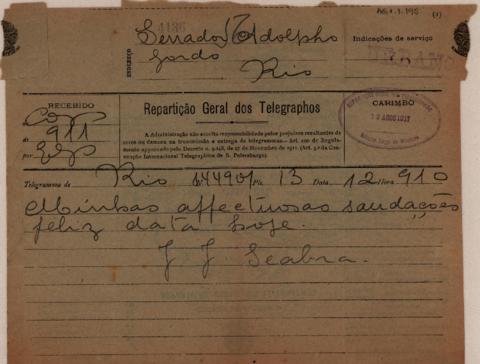 AG.1.1.195 (1)
4136
Senador Adolpho
Gordo
Rio
ENDEREÇO
Indicações de serviço
URBANO
RECEBIDO
de 911
por
Repartição Geral dos Telegraphos
A Administração não aceita responsabilidade pelos prejuizos resultantes de
erros ou demora na transmissão e entrega de telegrammas.—Art. 100 do Regula-
mento approvado pelo Decreto n. 9.148, de 27 de Novembro de 1911. (Art. 3º da Con-
venção Internacional Telegraphica de S. Petersburgo).
CARIMBO
REPARTIÇÃO GERAL DOS TELEGRAPHOS
12 AGOS 1917
Telegramma de Rio N. 4490 Pls. 13 Data 12 Hora 910
Minhas affectuosas saudações
feliz data hoje.
J J Seabra.